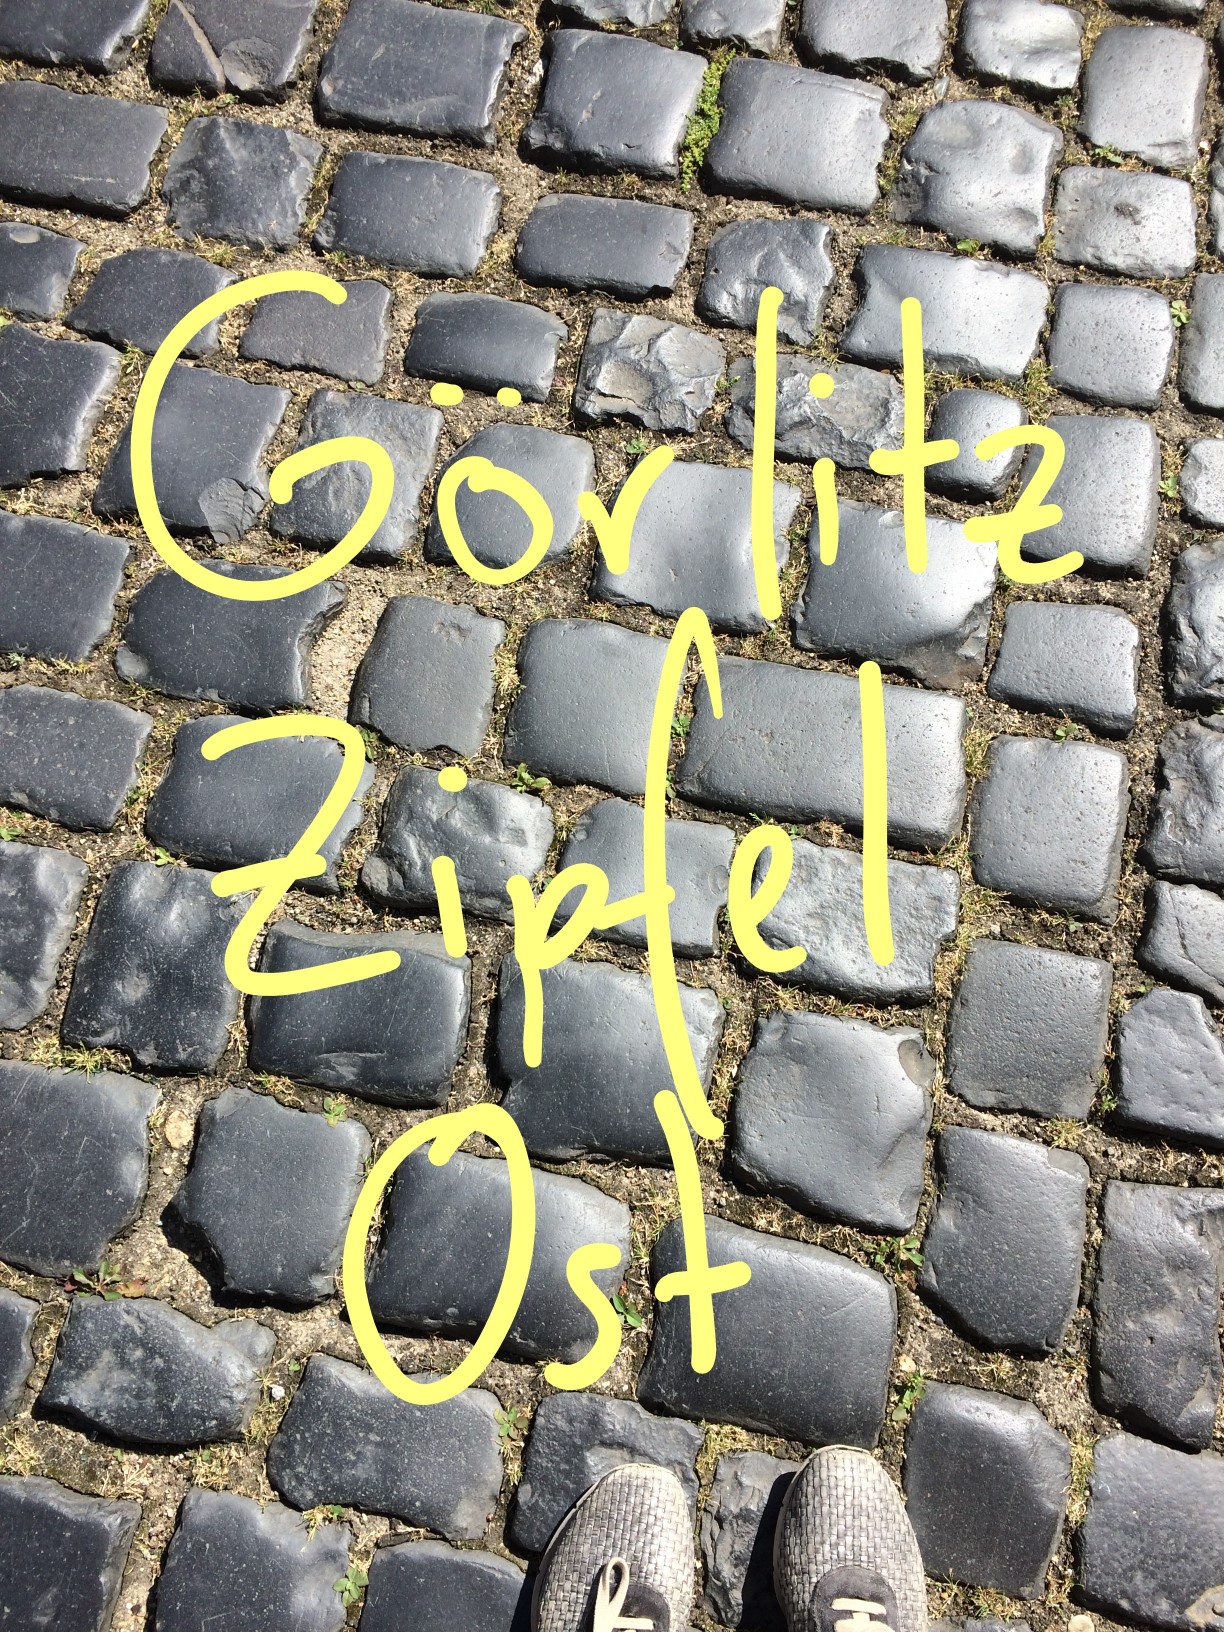 Görlitz
Zipfel
Ost